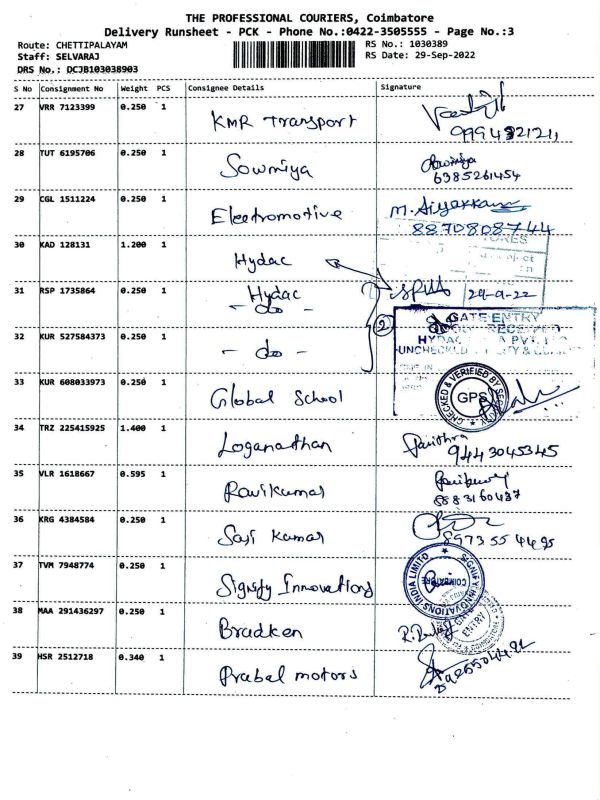 THE PROFESSIONAL COURIERS, Coimbatore
Delivery Runsheet - PCK - Phone No.:0422-3505555 - Page No.:3
Route: CHETTIPALAYAM
RS No.: 1030389
Staff: SELVARAJ
RS Date: 29-Sep-2022
DRS No.: DCJB103038903
S No Consignment No Weight PCS Consignee Details Signature
27 VRR 7123399 0.250 1 KMR Transport
28 TUT 6195706 0.250 1 Sowmiya
6385261454
29 CGL 1511224 0.250 1 Electromotive M. Aiyakkannu
8870808744
30 KAD 128131 1.200 1 Hydac
STORES
31 RSP 1735864 0.250 1 Hydac
- do -
29-9-22
2
32 KUR 527584373 0.250 1 - do -
GATE ENTRY
RECEIVED
HYDAC PVT.
UNCHECKED
33 KUR 608033973 0.250 1 Global School
CHECKED & VERIFIED BY SECURITY
GPS
34 TRZ 225415925 1.400 1 Loganathan Pavithra
9443045345
35 VLR 1618667 0.595 1 Ravikumar
8883160437
36 KRG 4384584 0.250 1 Sasi Kumar
8973554495
37 TVM 7948774 0.250 1 Signify Innovations
SIGNIFY INNOVATIONS INDIA LIMITED
COIMBATORE
38 MAA 291436297 0.250 1 Bradken
ENTRY
39 HSR 2512718 0.340 1 Prabal motors